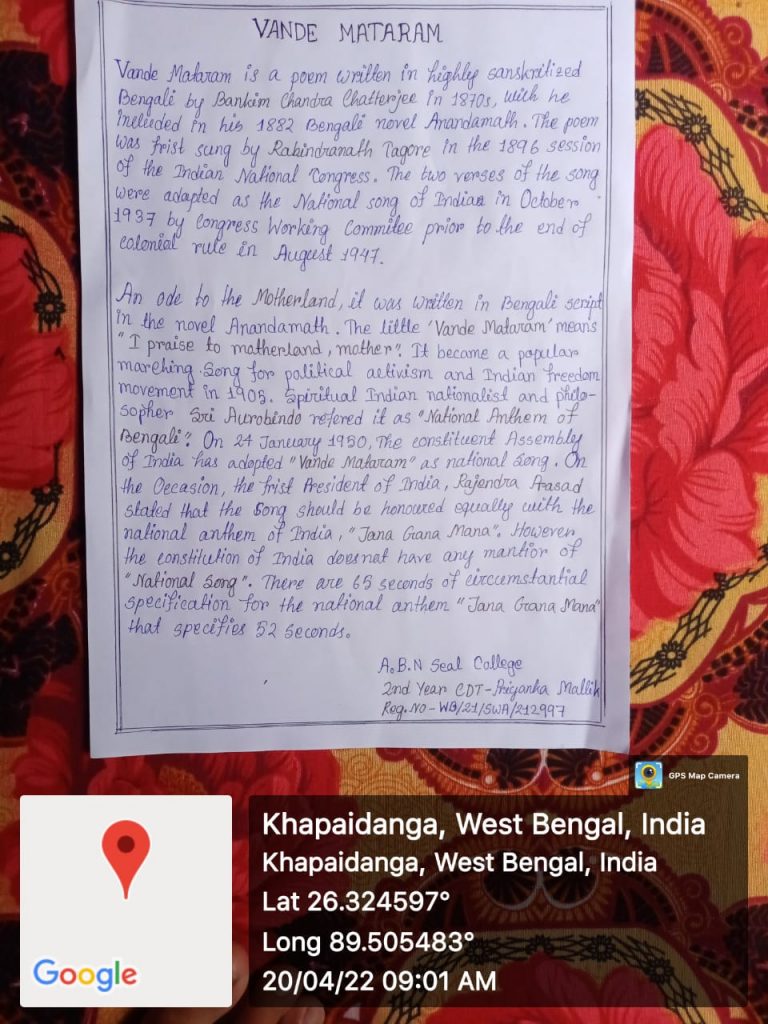 VANDE MATARAM
Vande Mataram is a poem written in highly sanskritized
Bengali by Bankim Chandra Chatterjee in 1870s, with he
included in his 1882 Bengali novel Anandamath. The poem
was frist sung by Rabindranath Tagore in the 1896 session
of the Indian National Congress. The two verses of the song
were adapted as the National song of Indian in October
1937 by Congress Working Commitee prior to the end of
colonial rule in August 1947.
An ode to the Motherland, it was written in Bengali script
in the novel Anandamath. The little 'Vande Mataram' means
"I praise to matherland, mother". It became a popular
marching song for political activism and Indian freedom
movement in 1905. Spiritual Indian nationalist and philo-
sopher Sri Aurobindo refered it as "National Anthem of
Bengali". On 24 January 1950, The constituent Assembly
of India has adopted "Vande Mataram" as national song. On
the Occasion, the frist President of India, Rajendra Prasad
stated that the song should be honoured equally with the
national anthem of India, "Jana Gana Mana". However
the constitution of India doesnot have any mantior of
"National Song". There are 65 seconds of circumstantial
specification for the national anthem "Jana Grana Mana"
that specifies 52 seconds.
A.B.N Seal College
2nd Year CDT-Priyanka Mallik
Reg.No-WB/21/SWA/212997
GPS Map Camera
Khapaidanga, West Bengal, India
Khapaidanga, West Bengal, India
Lat 26.324597°
Long 89.505483°
20/04/22 09:01 AM
Google